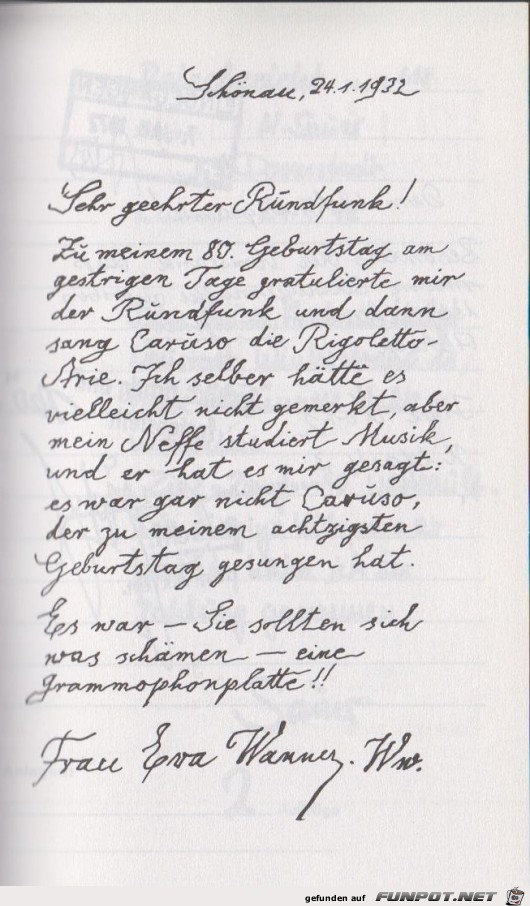 Schönau, 24.1.1932
Sehr geehrter Rundfunk!
Zu meinem 80. Geburtstag am
gestrigen Tage gratulierte mir
der Rundfunk und dann
sang Caruso die Rigoletto-
Arie. Ich selber hätte es
vielleicht nicht gemerkt, aber
mein Neffe studiert Musik,
und er hat es mir gesagt:
es war gar nicht Caruso,
der zu meinem achtzigsten
Geburtstag gesungen hat.
Es war – Sie sollten sich
was schämen – eine
Grammophonplatte!!
Frau Eva Wanner. Ww.
gefunden auf FUNPOT.NET